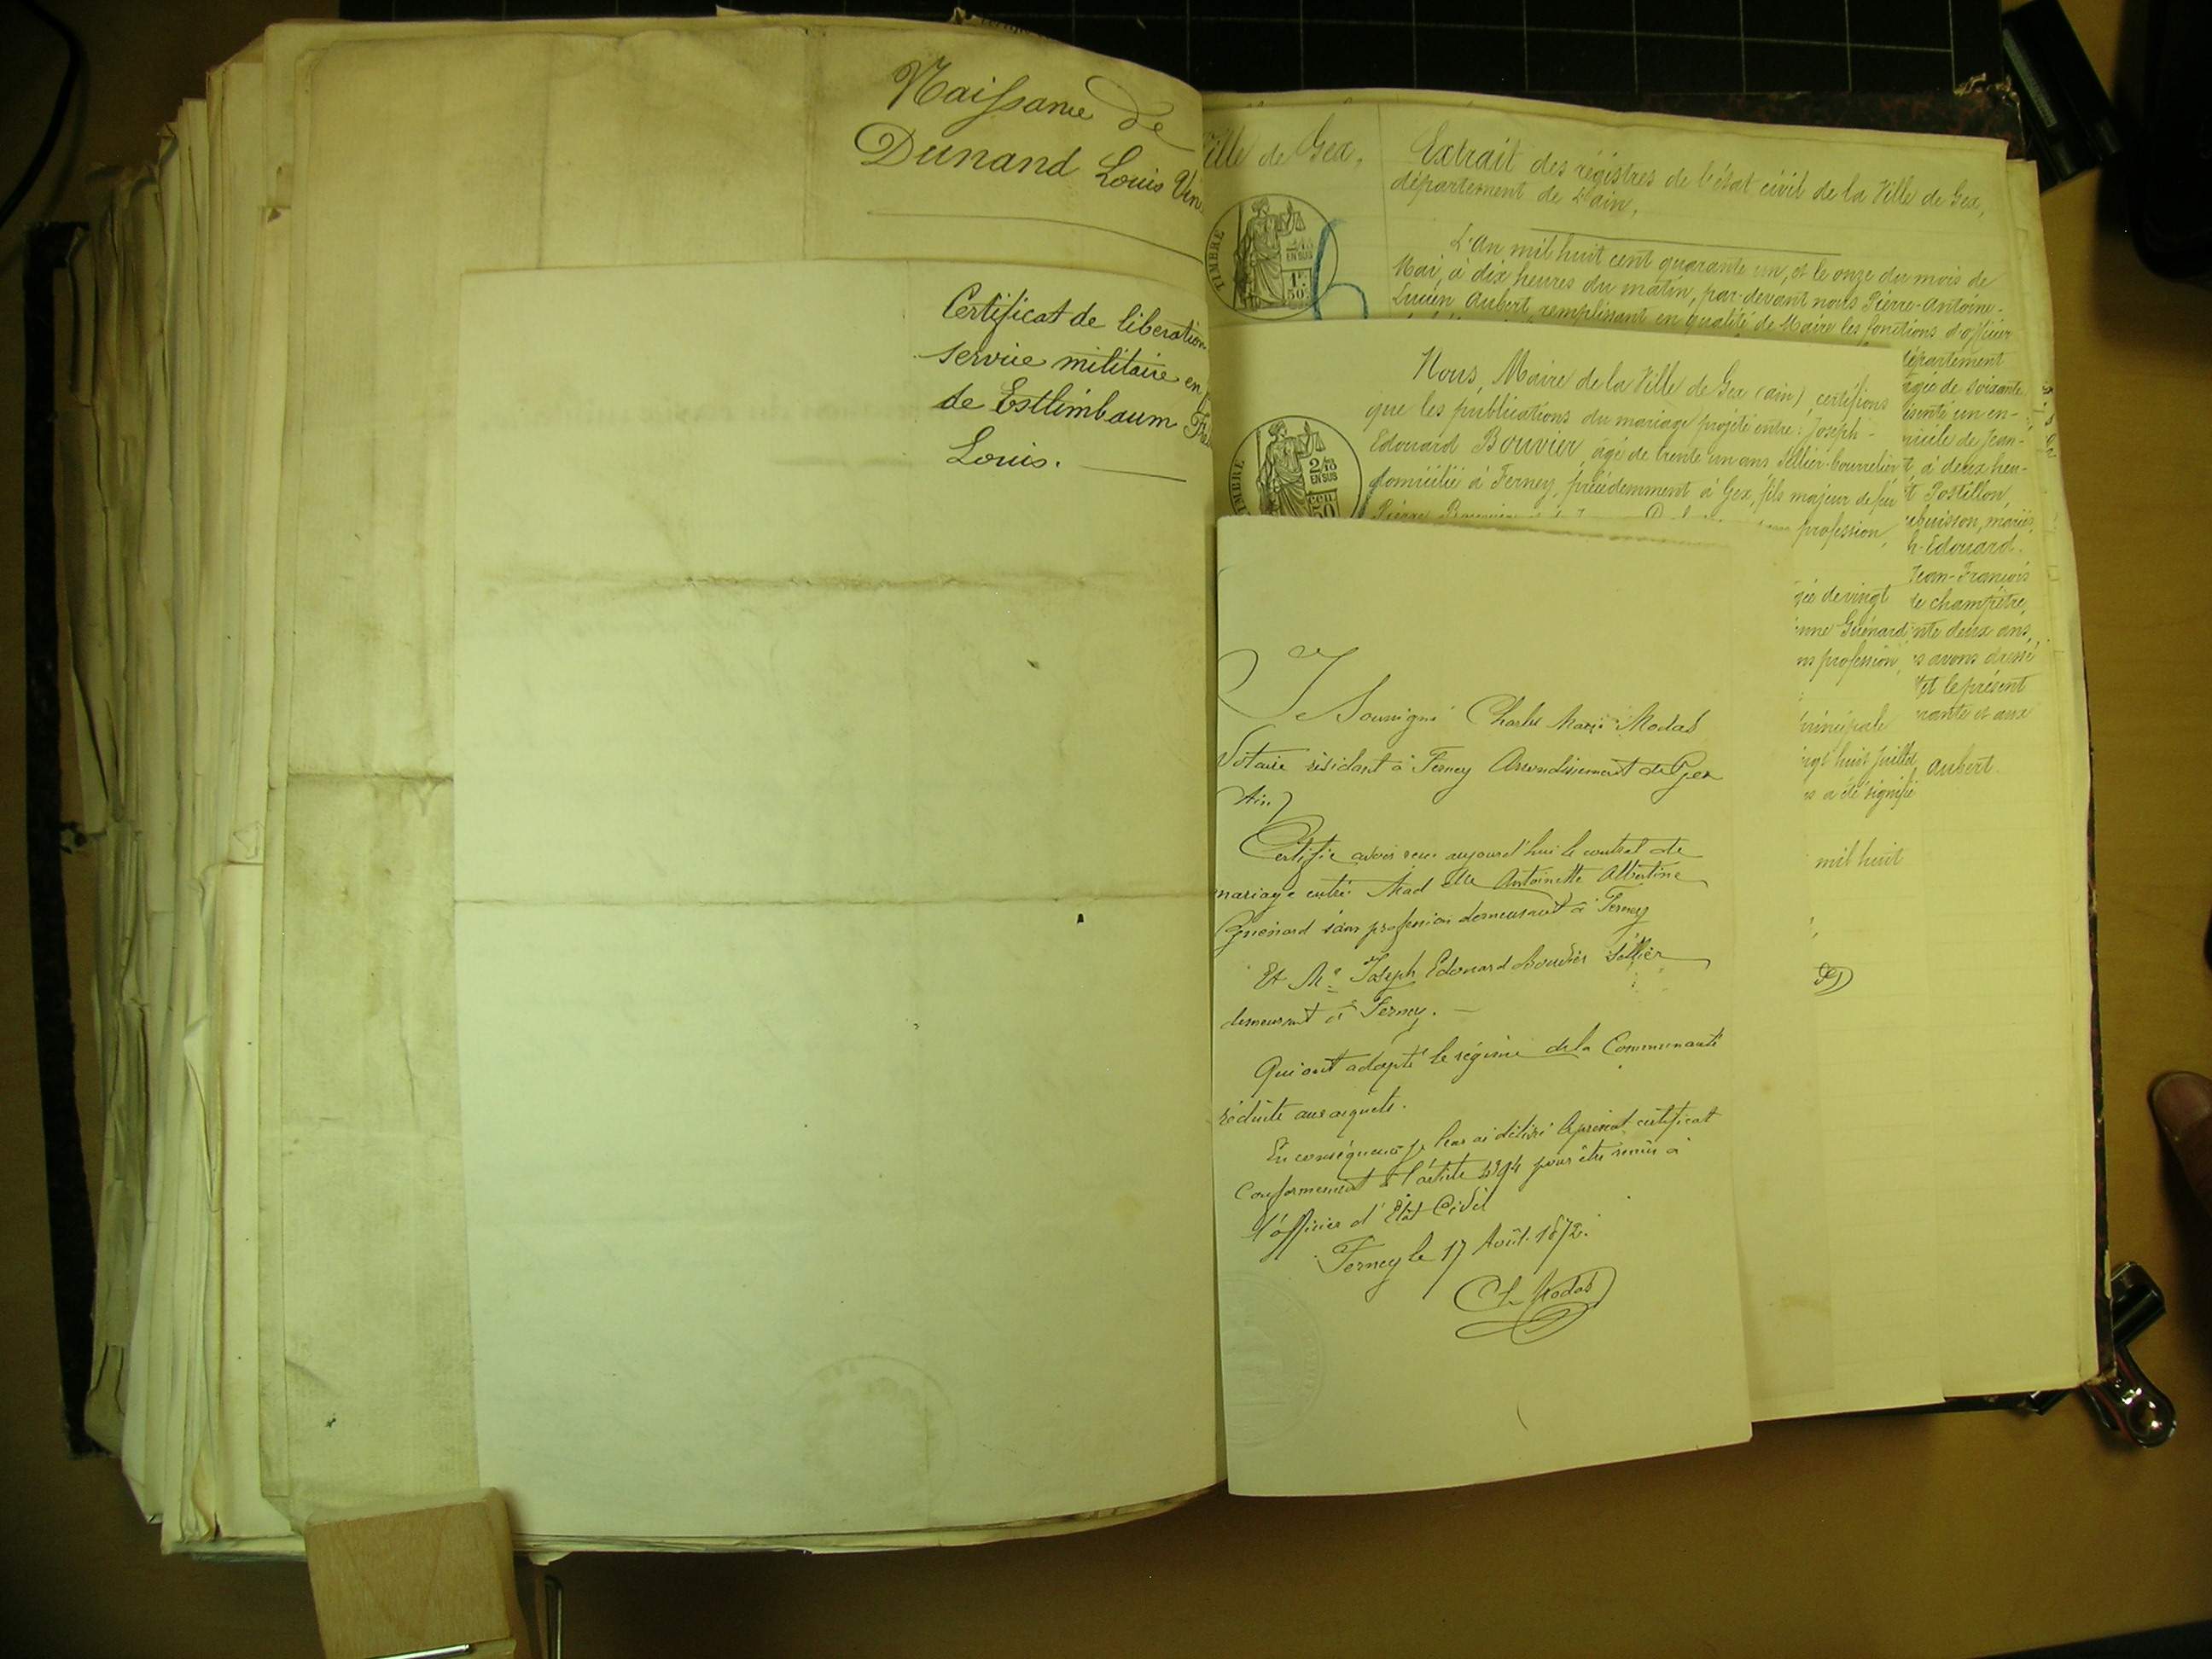 Naissance de
Dunand Louis Vin
Certificat de liberation
service militaire en
de Estlimbaum
Louis.
Ville de Gex.
Extrait des régistres de l'état civil de la Ville de Gex,
département de L'ain,
TIMBRE
2/10
EN SUS
1 F.
50 c
L'An mil huit cent quarante un, et le onze du mois de
Mai, à dix heures du matin, par-devant nous Pierre-Antoine-
Lucien Aubert, remplissant en qualité de Maire les fonctions d'officier
département
agée de soixante
ésenté un en-
micile de Jean-
à deux heu-
Postillon,
ubuisson, mariés,
h-Edouard.
Jean-François
de champêtre,
nte deux ans,
s avons dressé
et le présent
rante et aux
Aubert.
Nous, Maire de la Ville de Gex (ain), certifions
que les publications du mariage projeté entre: Joseph-
Edouard Bouvier, âgé de trente un ans Sellier-bourrelier
domicilié à Ferney, précédemment à Gex, fils majeur de feu
profession,
TIMBRE
2/10
EN SUS
50
gée de vingt
nne Guénard
ns profession,
principale
ngt huit juillet
s a été signifié
mil huit
Je Soussigné Charles Marie Modas
Notaire résidant à Ferney Arrondissement de Gex
Ain)
Certifie avoir reçu aujourd'hui le contrat de
mariage entre Mad elle Antoinette Albertine
Guénard sans profession demeurant à Ferney
Et Mr. Joseph Edouard Bouvier Sellier
demeurant à Ferney. —
Qui ont adopté le régime de la Communauté
réduite aux acquets.
En conséquence je leur ai délivré le présent certificat
Conformement à l'article 1394 pour être remis à
l'officier d'État Civil
Ferney le 17 Août 1872.
Ch Modas